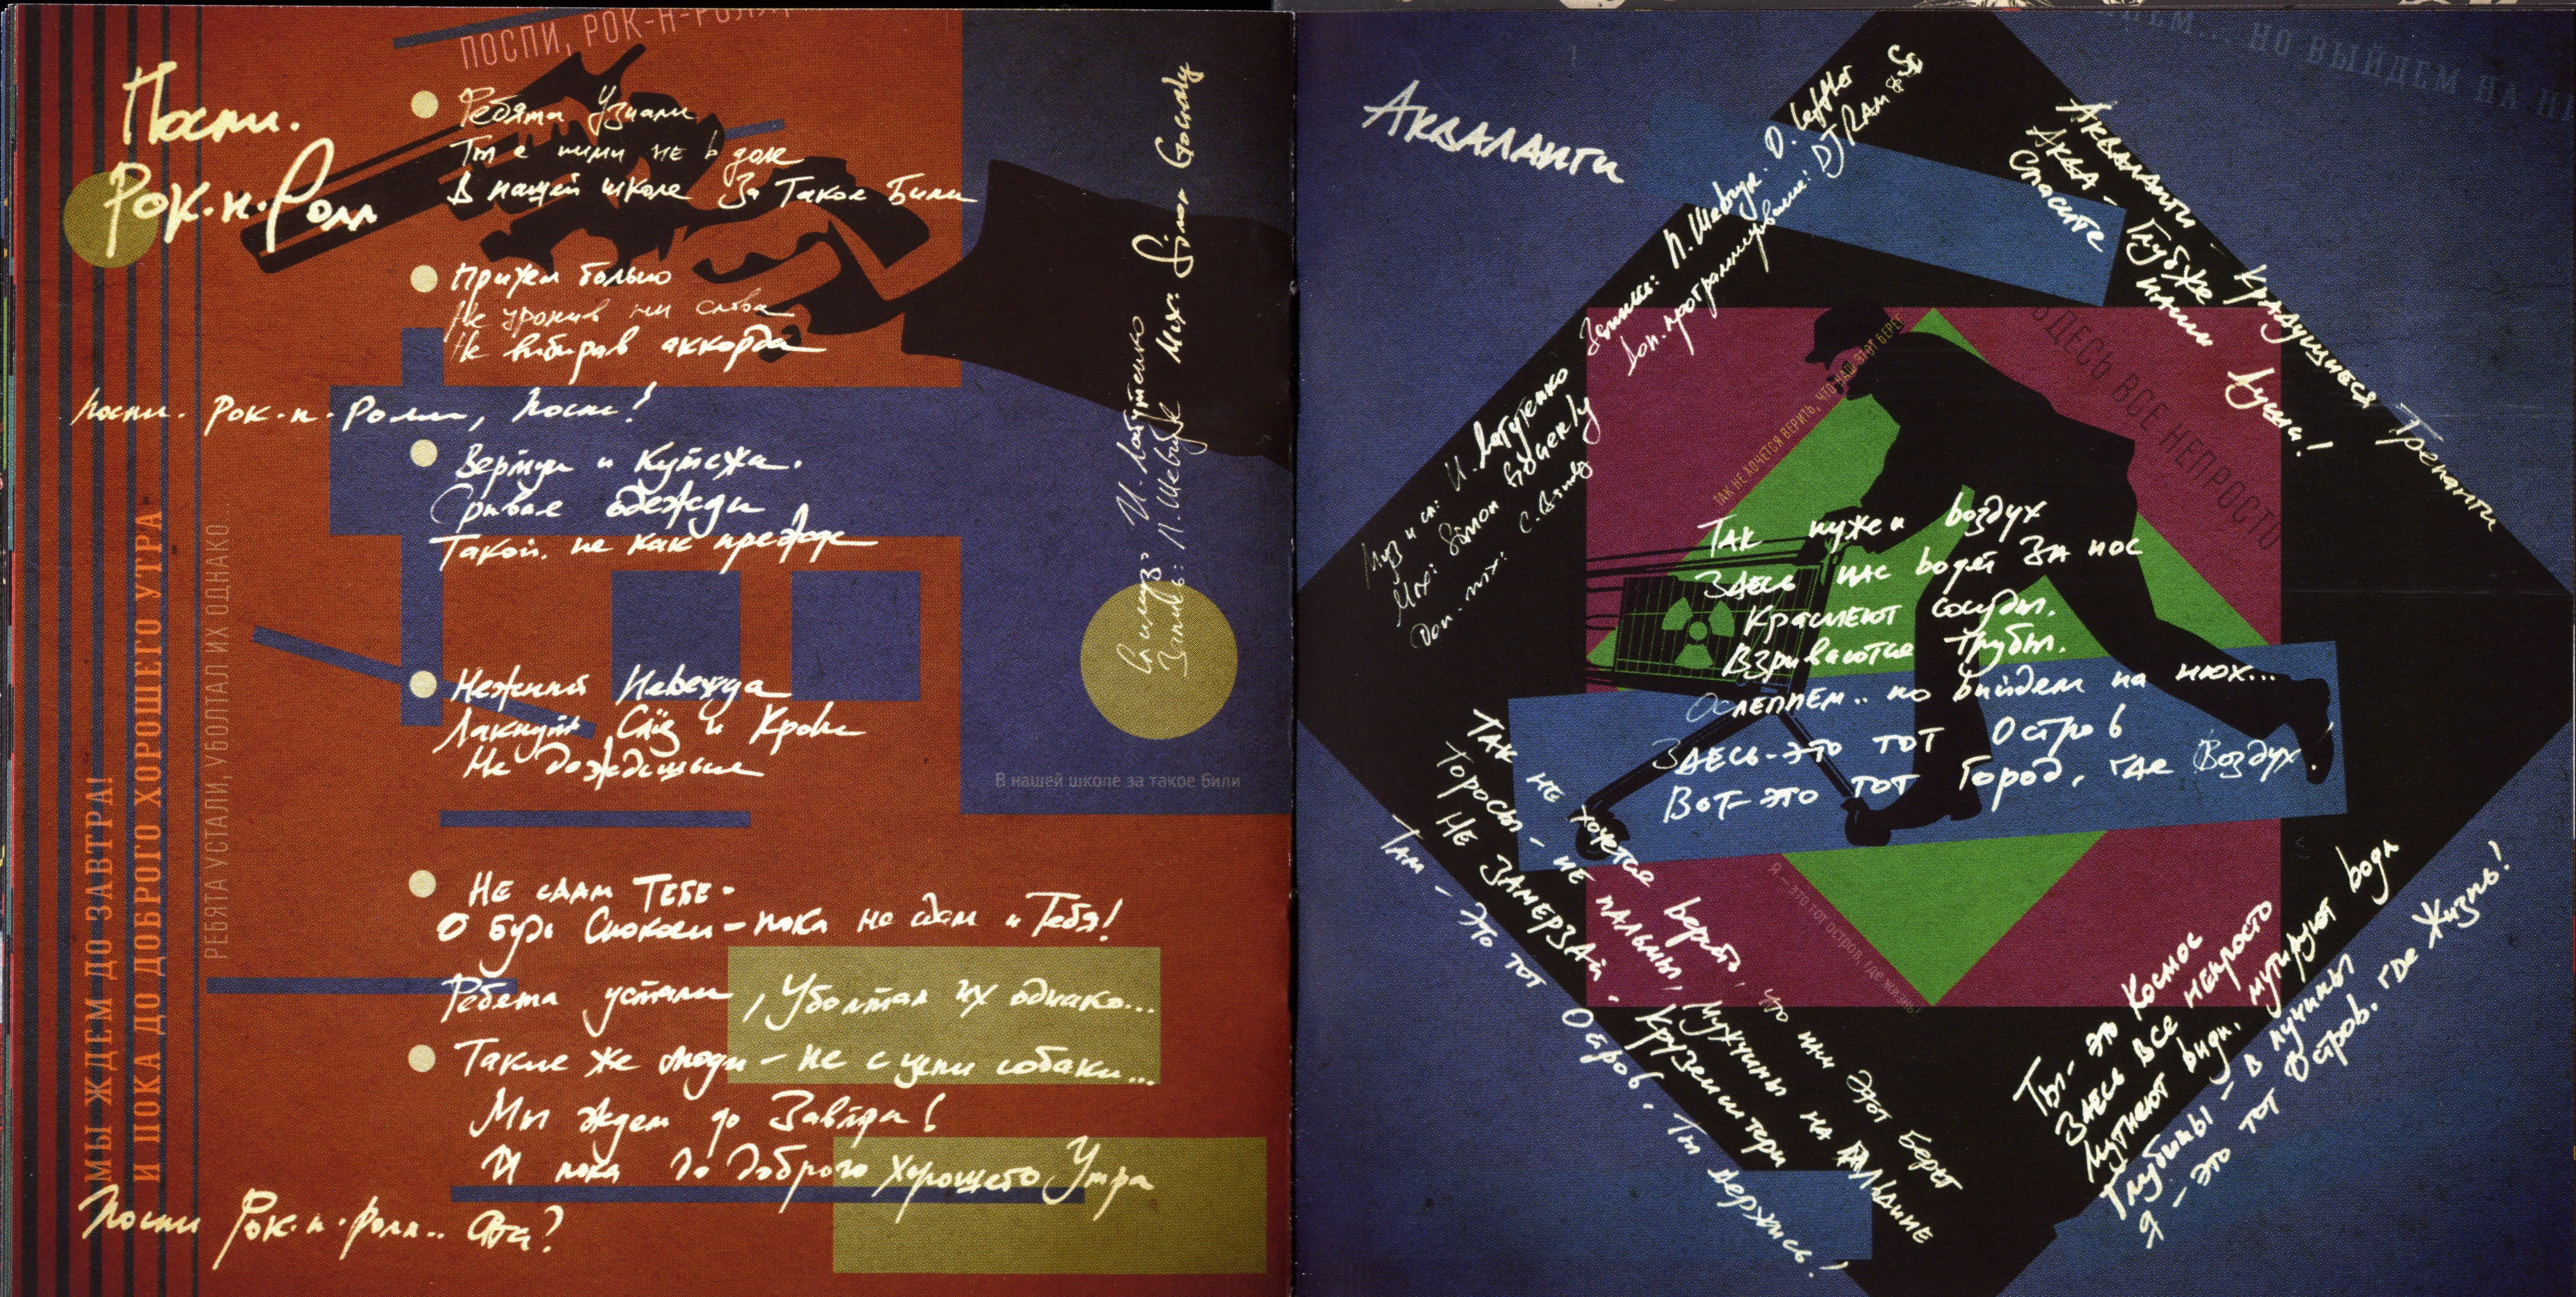 ПОСПИ, РОК-Н-РОЛЛ
Поспи.
Рок-н-Ролл
Ребята Узнали
Ты с ними не в доле
В нашей школе За Такое Били
Прижал больно
Не уронив ни слова
Не выбирав аккорда
Поспи. Рок-н-Ролл, Поспи!
Сривал одежды
Такой. не как прежде
Нежный Невежда
Лакнуть Слёз и Крови
Не дождёшься
НЕ СДАМ ТЕБЕ-
О будь Спокоен-пока не сдам и Тебя!
Ребята устали, Уболтал их однако...
Такие же люди-не с цепи собаки...
Мы ждем до Завтра!
И пока до доброго хорошего Утра
Поспи Рок-н-ролл.. Ота?
МЫ ЖДЕМ ДО ЗАВТРА!
И ПОКА ДО ДОБРОГО ХОРОШЕГО УТРА
РЕБЯТА УСТАЛИ, УБОЛТАЛ ИХ ОДНАКО...
И. Лагутенко
Запись: П. Шевчук Mix:
В нашей школе за такое били
АКВАЛАНГИ
Муз и сл: И. Лагутенко
Mix:
Доп. mix:
Запись: П. Шевчук. D. Leffler
Доп. программирование: DJ RAM
АКВАЛАНГИ - Крадущиеся Трепанги
АКВА- Глубже
Спасите наши души!
...НО ВЫЙДЕМ НА НЮ
ЗДЕСЬ ВСЕ НЕПРОСТО
ТАК НЕ ХОЧЕТСЯ ВЕРИТЬ, ЧТО НАШ ЭТОТ БЕРЕГ
ТАК нужен воздух
ЗДЕСЬ нас водят ЗА нос
Краснеют сосуды.
Взрываются трубы.
ОСЛЕПНЕМ.. но выйдем на нюх...
ЗДЕСЬ-ЭТО ТОТ Остров
ВОТ-ЭТО ТОТ Город, где Воздух!
ТАК НЕ хочется верить, что наш этот берег
Торосы - НЕ пальмы, Мужчины на
НЕ ЗАМЕРЗАЙ - Крузенштерн
Там - это тот Остров. Ты держись!
Я - ЭТО ТОТ ОСТРОВ, ГДЕ ЖИЗНЬ!
Ты- это Космос
ЗДЕСЬ ВСЕ непросто
Мутнеют виды. мутируют воды
Глубины - в пучины
Я - это тот Остров. где Жизнь!